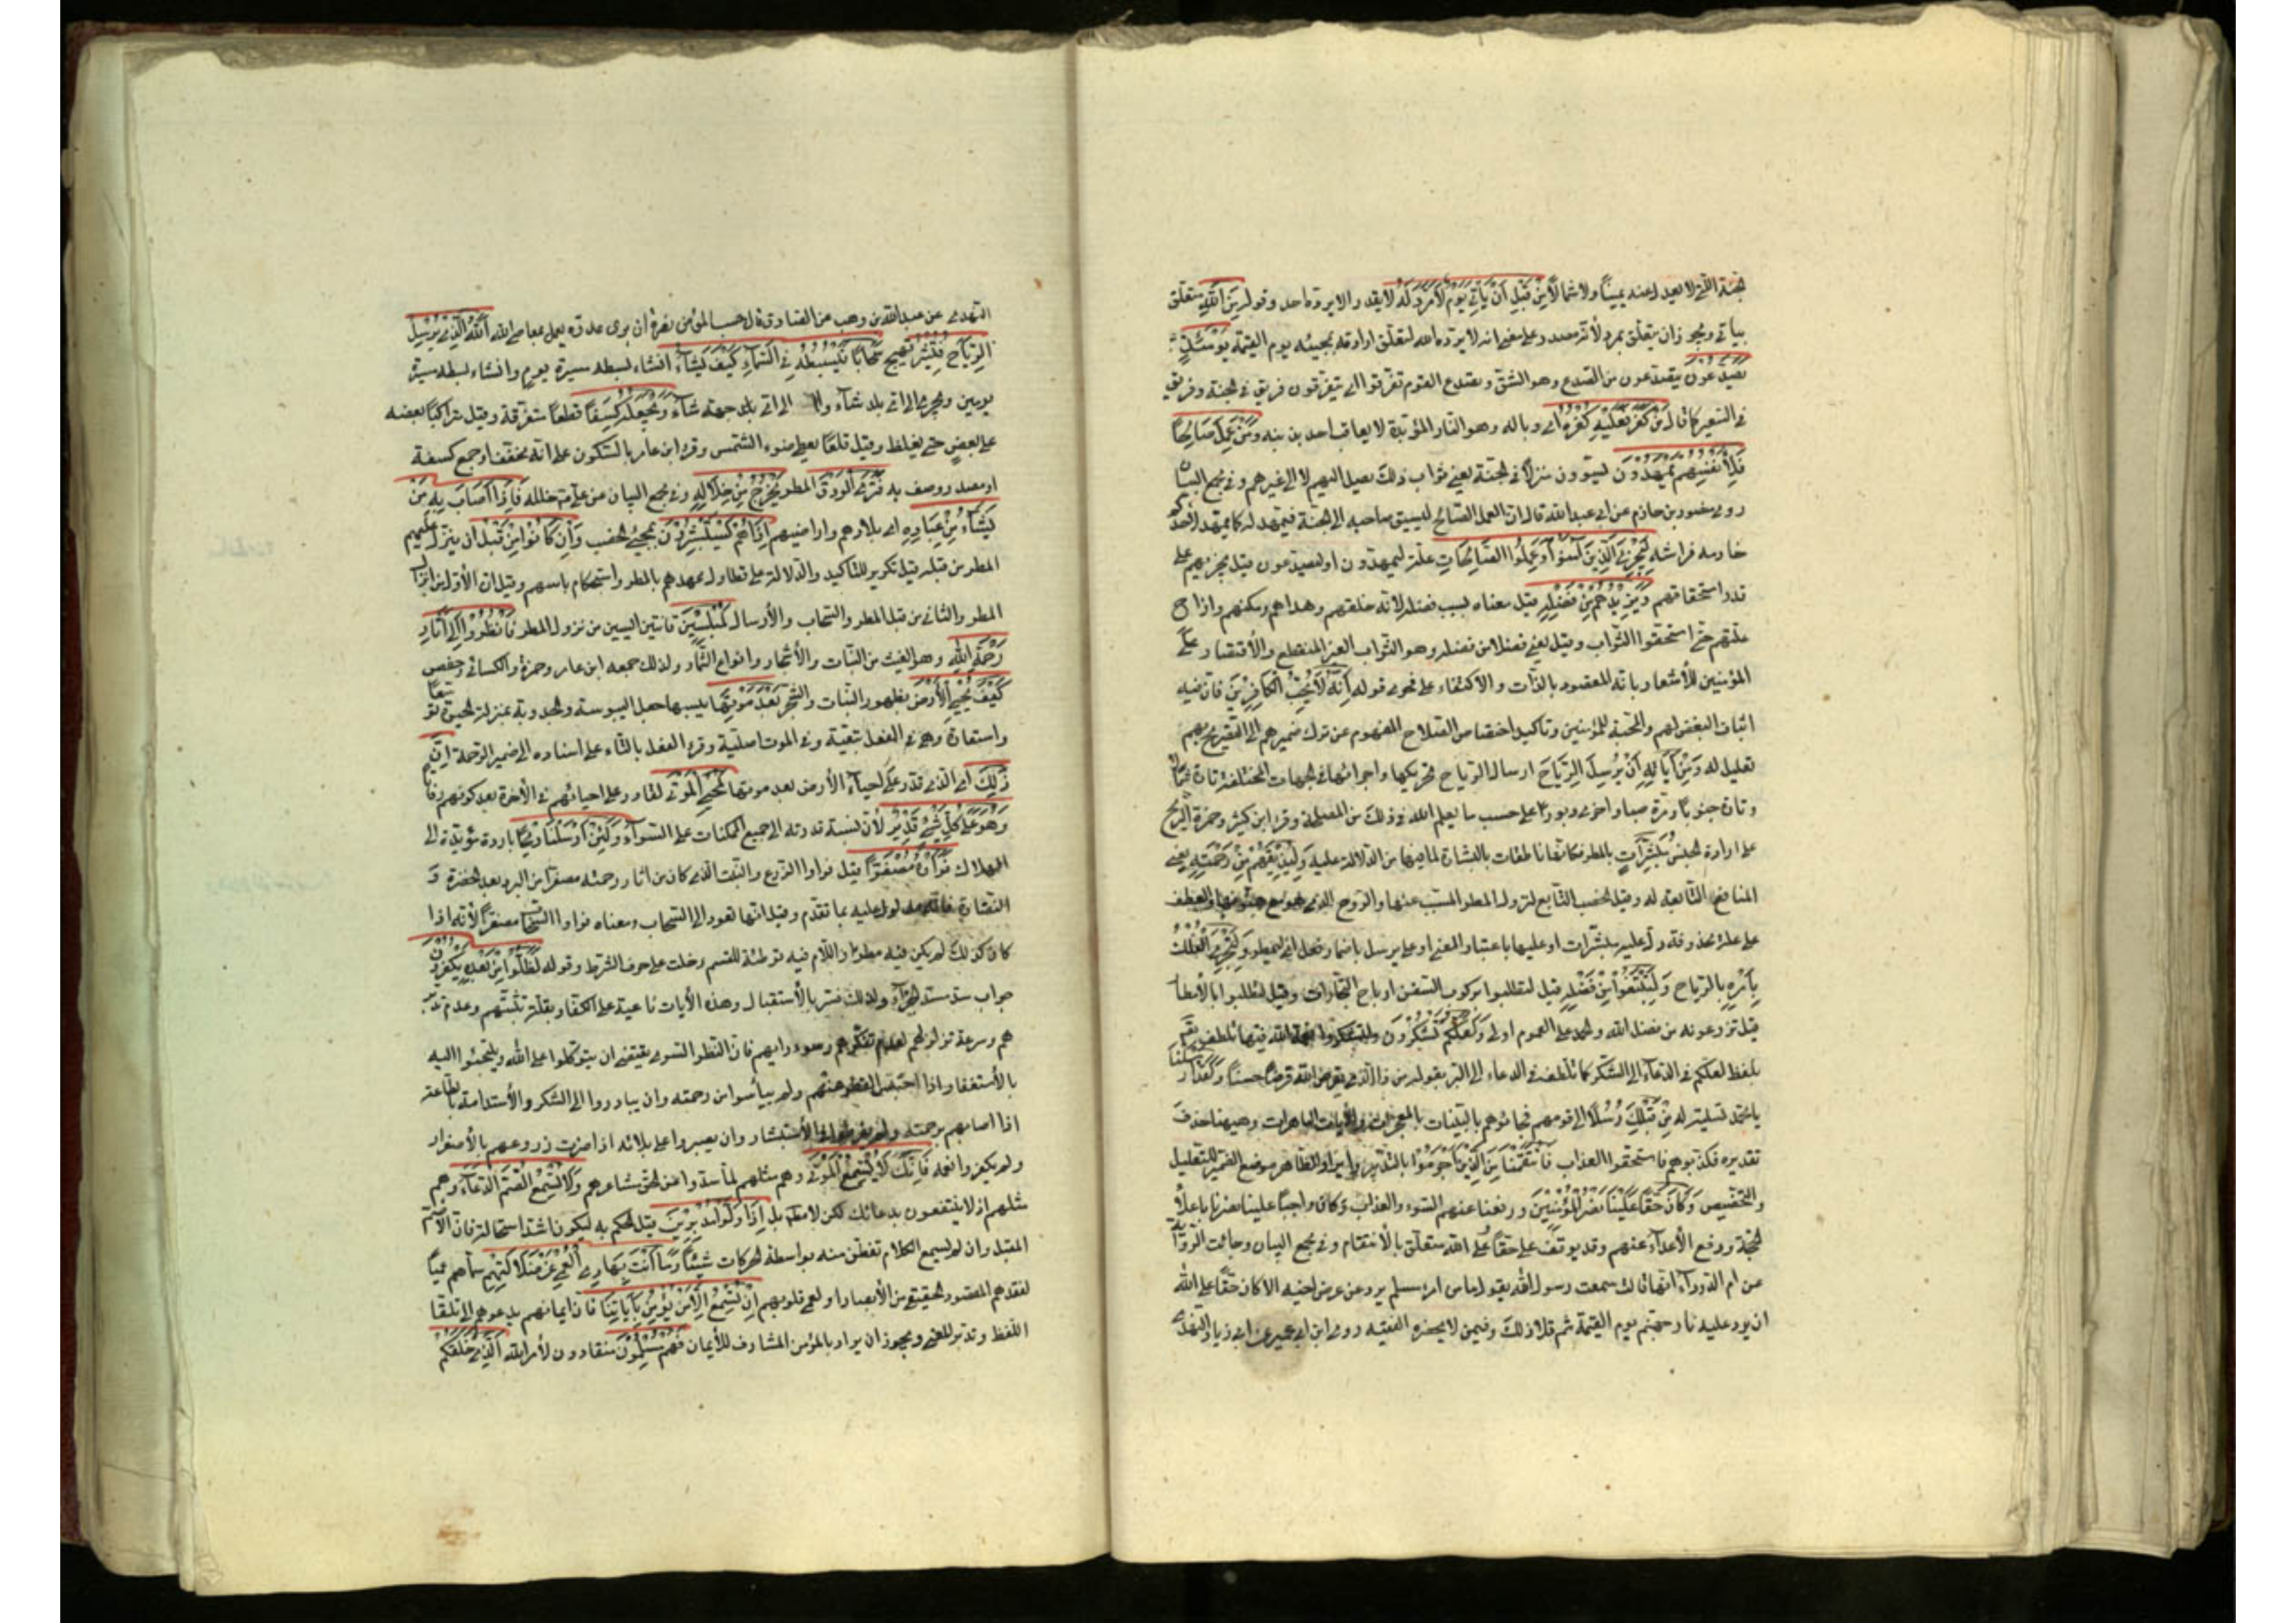 لجنة التي لا يعدل عنه يمينًا ولا شمالًا مِنْ قَبْلِ اَنْ يَأْتِيَ يَوْمٌ لَا مَرَدَّ لَهُ لا يقدر والا يرده احد وقوله مِنَ اللهِ متعلق
بيأتي ويجوز ان يتعلق بمرد لأنه مصدر وعلى معنى انه لا يرده الله لتعلق ارادته بمجيئه يوم القيمة يَوْمَئِذٍ
يَصَّدَّعُونَ يتصدعون من الصدع وهو الشق وتصدع القوم تفرقوا اي يتفرقون فريق في الجنة وفريق
في السعير كما قال مَنْ كَفَرَ فَعَلَيْهِ كُفْرُهُ اي وباله وهو النار المؤبدة لا يعاقب احد بذنبه وَمَنْ عَمِلَ صَالِحًا
فَلِأَنْفُسِهِمْ يَمْهَدُونَ يسوون منزلًا في الجنة يعني ثواب ذلك يصل اليهم لا الى غيرهم وفي مجمع البيان
روى منصور بن حازم عن ابي عبدالله قال ان العمل الصالح ليسبق صاحبه الى الجنة فيمهد له كما يمهد لاحدكم
خادمه فراشه لِيَجْزِيَ الَّذِينَ آمَنُوا وَعَمِلُوا الصَّالِحَاتِ علة ليمهدون او ليصدعون قيل يجزيهم على
قدر استحقاقهم وَيَزِيدُهُمْ مِنْ فَضْلِهِ قيل معناه بسبب فضله لانه خلقهم وهداهم ومكنهم وازاح
علتهم حتى استحقوا الثواب وقيل يعني فضلا من فضله وهو الثواب الغير المنقطع والأقتصار على
المؤمنين للأشعار بانه المقصود بالذات والاكتفاء على فحوى قوله اِنَّهُ لَا يُحِبُّ الْكَافِرِينَ فان فيه
اثبات البغض لهم والمحبة للمؤمنين وتاكيد اختصاص الصلاح المفهوم من ترك ضميرهم الى التصريح بهم
تعليل له وَمِنْ آيَاتِهِ اَنْ يُرْسِلَ الرِّيَاحَ ارسال الرياح تحريكها واجراؤها في الجهات المختلفة تارة شمالًا
وتارة جنوبًا ومرة صبا واخرى دبورًا على حسب ما يعلم الله في ذلك من المصلحة وقرء ابن كثير وحمزة الريح
على ارادة الجنس مُبَشِّرَاتٍ بالمطر فكانها ناطقات بالبشارة لما فيها من الدلالة عليه وَلِيُذِيقَكُمْ مِنْ رَحْمَتِهِ يعني
المنافع التابعة له وقيل الخصب التابع لنزول المطر المسبب عنها والروح الذي هو مع هبوبها والعطف
على علة محذوفة دل عليه مبشرات او عليها باعتبار المعنى او على يرسل باضمار فعل وَلِتَجْرِيَ الْفُلْكُ
بِاَمْرِهِ بالرياح وَلِتَبْتَغُوا مِنْ فَضْلِهِ قيل لتطلبوا بركوب السفن ارباح التجارات وقيل لتطلبوا بالأمطار
فيما تزرعونه من فضل الله والحمل على العموم اولى وَلَعَلَّكُمْ تَشْكُرُونَ ولتشكروا نعمة الله فيها تلطف
بلفظ لعلكم في الدعاء الى الشكر كما تلطف في الدعاء الى البر بقوله من ذا الذي يقرض الله قرضًا حسنًا وَلَقَدْ اَرْسَلْنَا
يا محمد تسلية له مِنْ قَبْلِكَ رُسُلًا الى قومهم فجاؤهم بالبينات بالمعجزات والآيات الباهرات وهيهنا حذف
تقديره فكذبوهم فاستحقوا العذاب فَانْتَقَمْنَا مِنَ الَّذِينَ اَجْرَمُوا بالتدمير وايراد الظاهر موضع الضمير للتعليل
والتخصيص وَكَانَ حَقًّا عَلَيْنَا نَصْرُ الْمُؤْمِنِينَ ودفعنا عنهم السوء والعذاب وكان واجبًا علينا نصرنا باعلاء
الحجة ودفع الأعداء عنهم وقد يوقف على حقًا على انه متعلق بالانتقام وفي مجمع البيان وجائت الرواية
عن ام الدرداء انها قالت سمعت رسول الله يقول ما من امرء مسلم يرد عن عرض اخيه الا كان حقًا على الله
ان يرد عليه نار جهنم يوم القيمة ثم قلا ذلك وفيمن لا يحضره الفقيه روى ابن ابي عمير عن ابي زياد النهدي
النهدي عن عبدالله بن وهب عن الصادق قال حسب المؤمن نصرة ان يرى عدوه يعمل بمعاصي الله اَللهُ الَّذِي يُرْسِلُ
الرِّيَاحَ فَتُثِيرُ تهيج سَحَابًا فَيَبْسُطُهُ فِي السَّمَاءِ كَيْفَ يَشَاءُ انشاء بسطه مسيرة يوم وانشاء بسطه مسيرة
يومين ويجريه الى اي بلد شاء الى اي جهة شاء وَيَجْعَلُهُ كِسَفًا قطعًا متفرقة وقيل متراكبًا بعضه
على بعض حتى يغلظ وقيل قطعًا يغطي ضوء الشمس وقرء ابن عامر بالسكون على انه مخفف او جمع كسفة
او مصدر وصف به فَتَرَى الْوَدْقَ المطر يَخْرُجُ مِنْ خِلَالِهِ وفي مجمع البيان عن علي من خلله فَاِذَا اَصَابَ بِهِ مَنْ
يَشَاءُ مِنْ عِبَادِهِ اي بلادهم واراضيهم اِذَا هُمْ يَسْتَبْشِرُونَ بمجيء الخصب وَاِنْ كَانُوا مِنْ قَبْلِ ان ينزل عليهم
المطر من قبله قيل تكرير للتاكيد والدلالة على تطاول عهدهم بالمطر واستحكام ياسهم وقيل ان الأول من انزال
المطر والثاني من قبل المطر والسحاب والأرسال لَمُبْلِسِينَ قانتين ايسين من نزول المطر فَانْظُرْ اِلَى آثَارِ
رَحْمَةِ اللهِ وهو الغيث من النبات والأشجار وانواع الثمار ولذلك جمعه ابن عامر وحمزة والكسائي وحفص
كَيْفَ يُحْيِي الْأَرْضَ بظهور النبات والشجر بَعْدَ مَوْتِهَا يبسها جعل اليبوسة والجدوبة بمنزلة
واستعارة وهي في الفعل تبعية وفي الموت اصلية وقرء الفعل بالتاء على اسناده الى ضمير الرحمة اِنَّ
ذٰلِكَ اي الذي قدر على احياء الأرض بعد موتها لَمُحْيِي الْمَوْتَى لقادر على احيائهم في الآخرة بعد كونهم رفاتا
وَهُوَ عَلَى كُلِّ شَيْءٍ قَدِيرٌ لأن نسبة قدرته الى جميع الممكنات على السواء وَلَئِنْ اَرْسَلْنَا رِيحًا باردة مؤدية الى
الهلاك فَرَاَوْهُ مُصْفَرًّا قيل فراوا الزرع والنبت الذي كان من اثار رحمته مصفرًا من البرد بعد الخضرة و
النضارة فانه مدلول عليه بما تقدم وقيل انها تعود الى السحاب ومعناه فراوا السحاب مصفرًا لأنه اذا
كان كذلك لم يكن فيه مطر واللام فيه توطئة للقسم دخلت على حرف الشرط وقوله لَظَلُّوا مِنْ بَعْدِهِ يَكْفُرُونَ
جواب سد مسد الجزاء ولذلك فسر بالأستقبال وهذه الآيات ناعية على الكفار بقلة تثبتهم وعدم تدبر
هم وسرعة تزلزلهم لعدم تفكرهم وسوء رايهم فان النظر السوي يقتضي ان يتوكلوا على الله ويلتجئوا اليه
بالأستغفار اذا احتبس القطر عنهم ولم ييأسوا من رحمته وان يبادروا الى الشكر والأستدامة بالطاعة
اذا اصابهم برحمته ولم يفرطوا في الأستبشار وان يصبروا على بلائه اذا ضرب زروعهم بالأصفرار
ولم يكفروا نعمه فَاِنَّكَ لَا تُسْمِعُ الْمَوْتَى وهم مثلهم لما سدوا عن الحق مشاعرهم وَلَا تُسْمِعُ الصُّمَّ الدُّعَاءَ وهم
مثلهم اذ لا ينتفعون بدعائك لكن لا مطلقا بل اِذَا وَلَّوْا مُدْبِرِينَ قيل الحكم به ليكون اشد استحالة فان الأصم
المقبل وان لم يسمع الكلام تفطن منه بواسطة الحركات شيئًا وَمَا اَنْتَ بِهَادِ الْعُمْيِ عَنْ ضَلَالَتِهِمْ سماهم عميًا
لفقدهم المقصود الحقيقي من الأبصار او لعمى قلوبهم اِنْ تُسْمِعُ اِلَّا مَنْ يُؤْمِنُ بِآيَاتِنَا فان ايمانهم يدعوهم الى تلقي
اللفظ وتدبر المعنى ويجوز ان يراد بالمؤمن المشارف للأيمان فَهُمْ مُسْلِمُونَ منقادون لأمر الله اَلَّذِي خَلَقَكُمْ